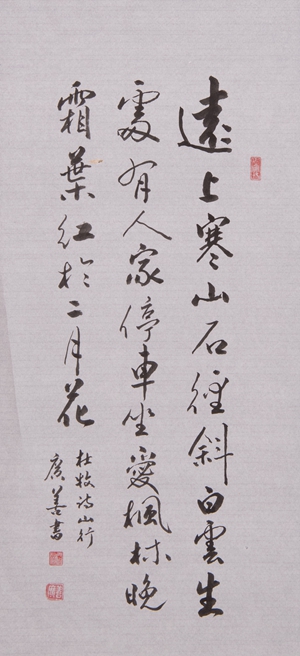 遠上寒山石徑斜白雲生
處有人家停車坐愛楓林晚
霜葉紅於二月花
杜牧詩山行
廣善書